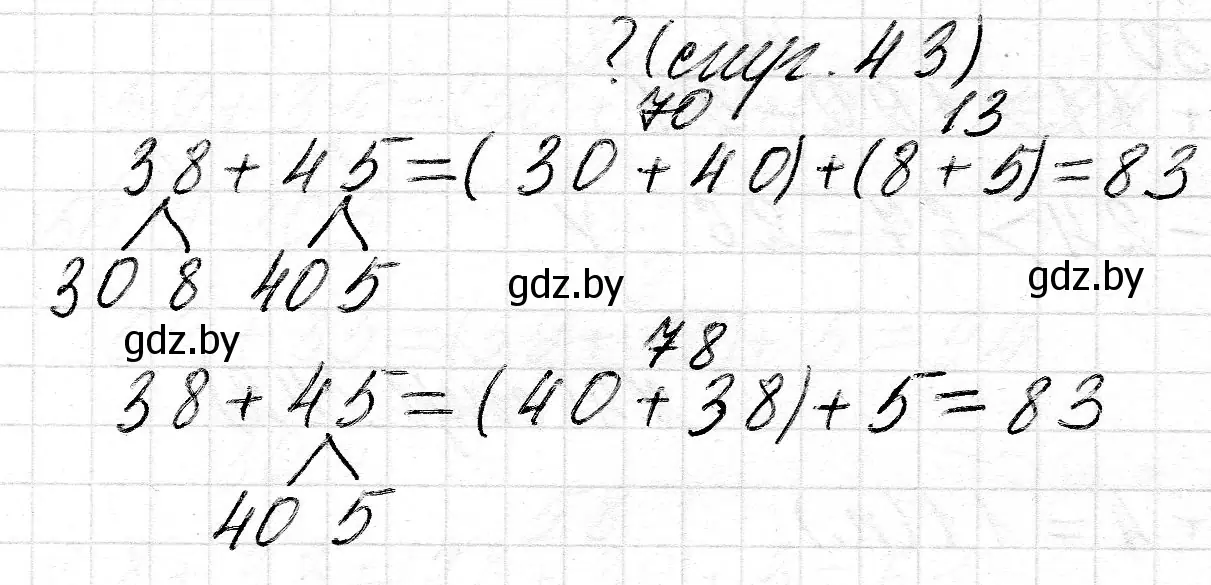 ?(стр. 43)
70 13
38 + 45 = (30 + 40) + (8 + 5) = 83
30 8 40 5
gdz.by gdz.by
gdz.by
78
38 + 45 = (40 + 38) + 5 = 83
40 5